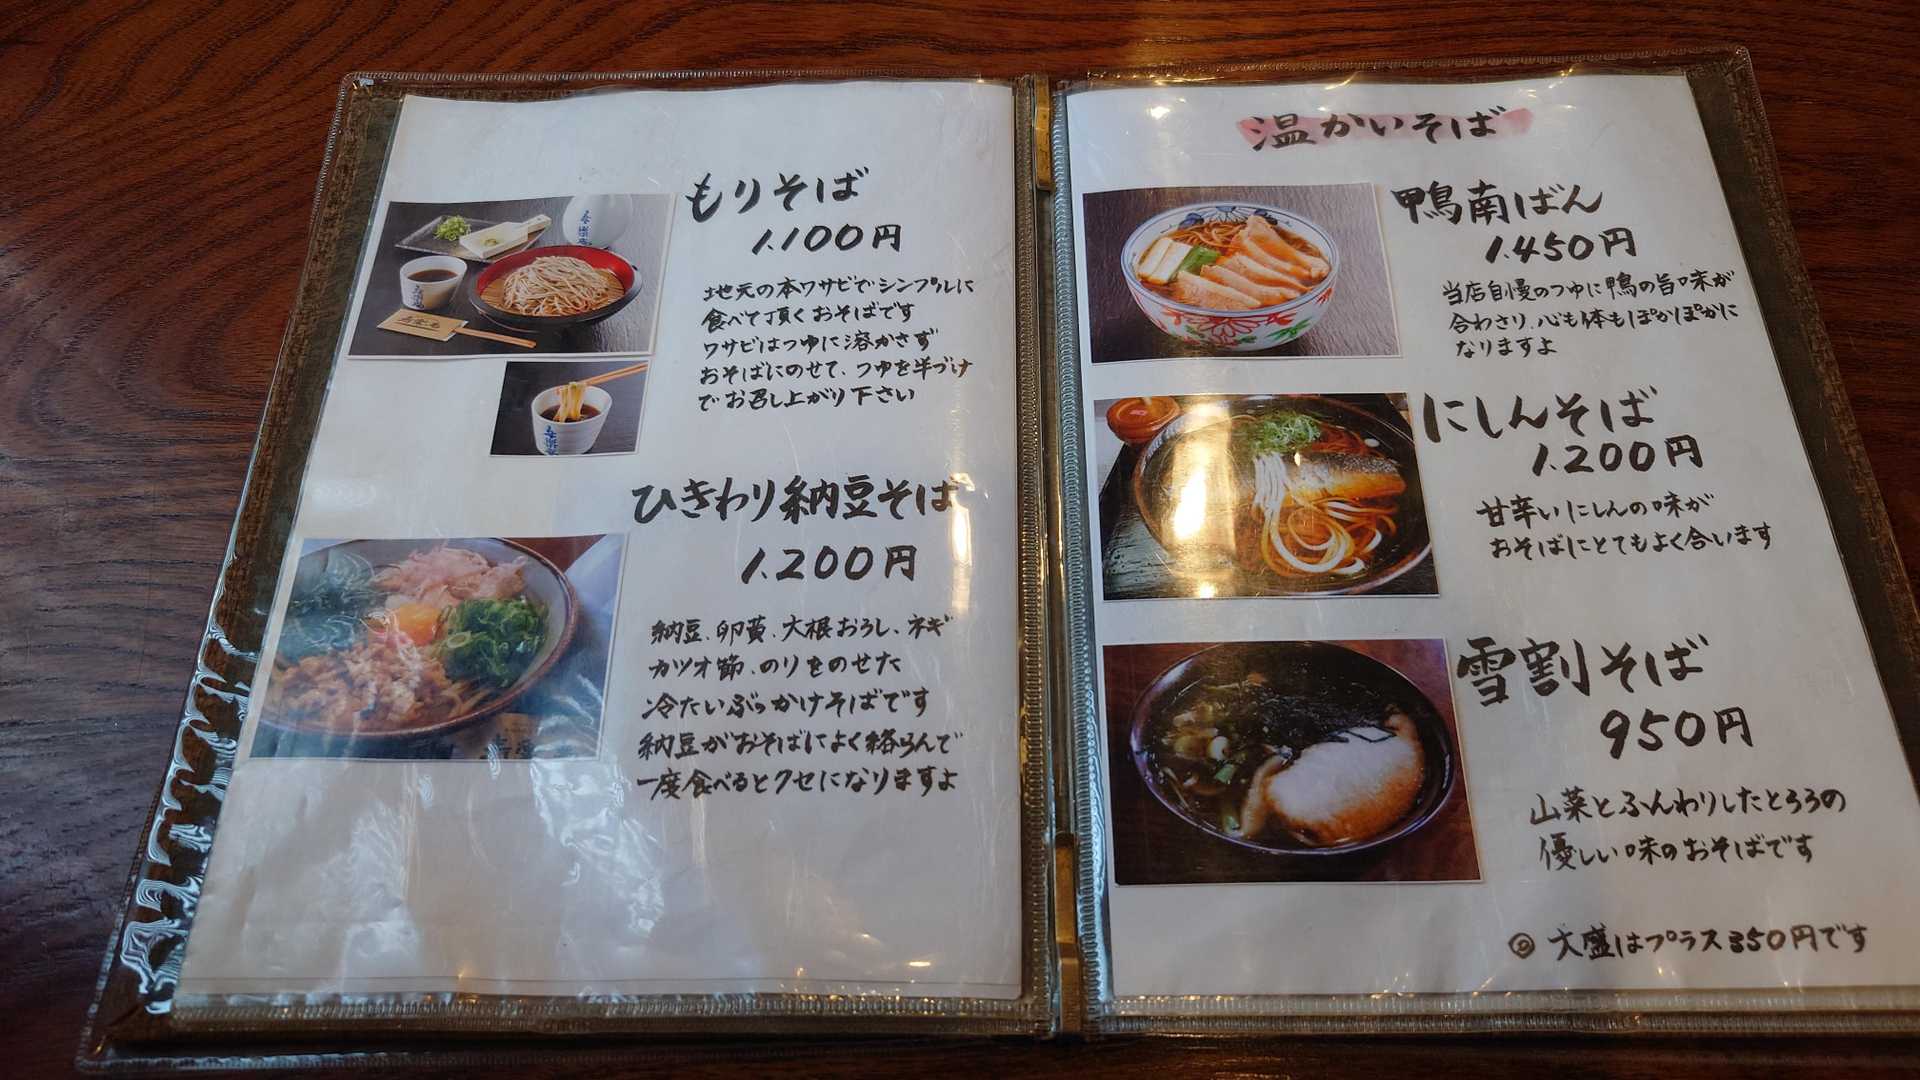 もりそば
1.100円
地元の本ワサビでシンプルに
食べて頂くおそばです
ワサビはつゆに溶かさず
おそばにのせて、つゆを半づけ
でお召し上がり下さい
ひきわり納豆そば
1.200円
納豆、卵黄、大根おろし、ネギ
カツオ節、のりをのせた
冷たいぶっかけそばです
納豆がおそばによく絡らんで
一度食べるとクセになりますよ
温かいそば
鴨南ばん
1.450円
当店自慢のつゆに鴨の旨味が
合わさり、心も体もぽかぽかに
なりますよ
にしんそば
1.200円
甘辛いにしんの味が
おそばにとてもよく合います
雪割そば
950円
山菜とふんわりしたとろろの
優しい味のおそばです
◎ 大盛はプラス350円です